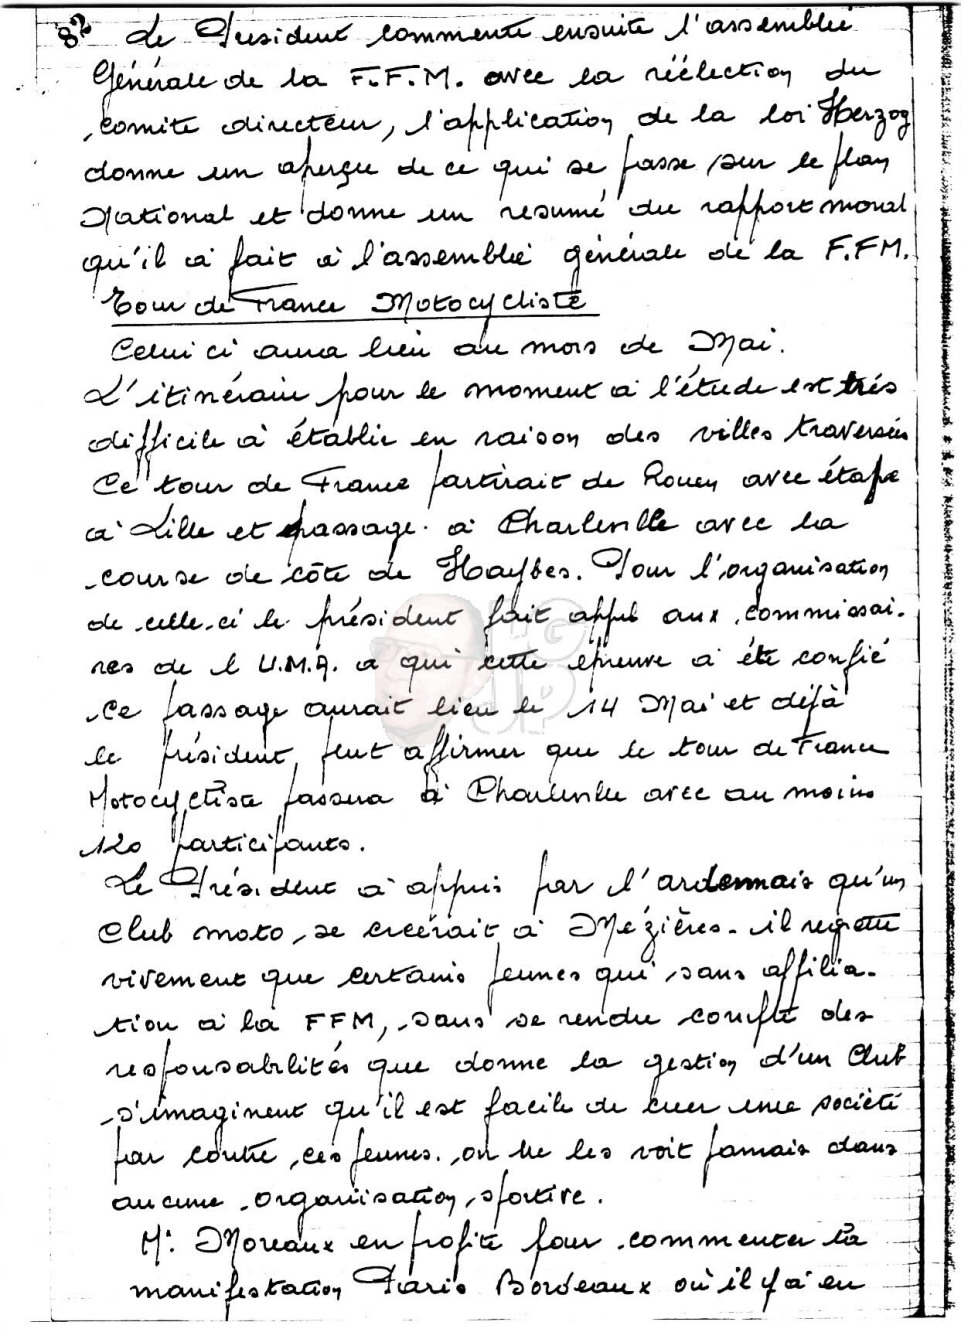 82
Le Président commente ensuite l'assemblée
Générale de la F.F.M. avec la réélection du
comité directeur, l'application de la loi Herzog
donne un aperçu de ce qui se passe sur le plan
National et donne un resumé du rapport moral
qu'il a fait à l'assemblée générale de la F.FM.
Tour de France Motocycliste
Celui ci aura lieu au mois de Mai.
L'itinéraire pour le moment à l'étude est très
difficile à établir en raison des villes traversées
Ce tour de France partirait de Rouen avec étape
à Lille et passage à Charleville avec la
course de côte de Haybes. Pour l'organisation
de celle-ci le président fait appel aux commissai-
res de l U.M.A. à qui cette épreuve a été confié
Ce passage aurait lieu le 14 Mai et déjà
le président peut affirmer que le tour de France
Motocycliste passera à Charleville avec au moins
120 participants.
Le Président a appris par l'ardennais qu'un
Club moto, se créérait à Mézières. il regrette
vivement que certains jeunes qui sans affilia-
tion à la FFM, sans se rendre compte des
responsabilités que donne la gestion d'un Club
s'imaginent qu'il est facile de créer une société
par contre, ces jeunes. on ne les voit jamais dans
aucune organisation sportive.
Mr. Moreaux en profite pour commenter la
manifestation Paris Bordeaux où il y a eu
LG
JP